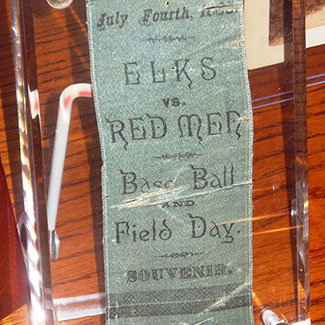 July Fourth,
ELKS
VS.
RED MEN
Base Ball
AND
Field Day.
SOUVENIR.